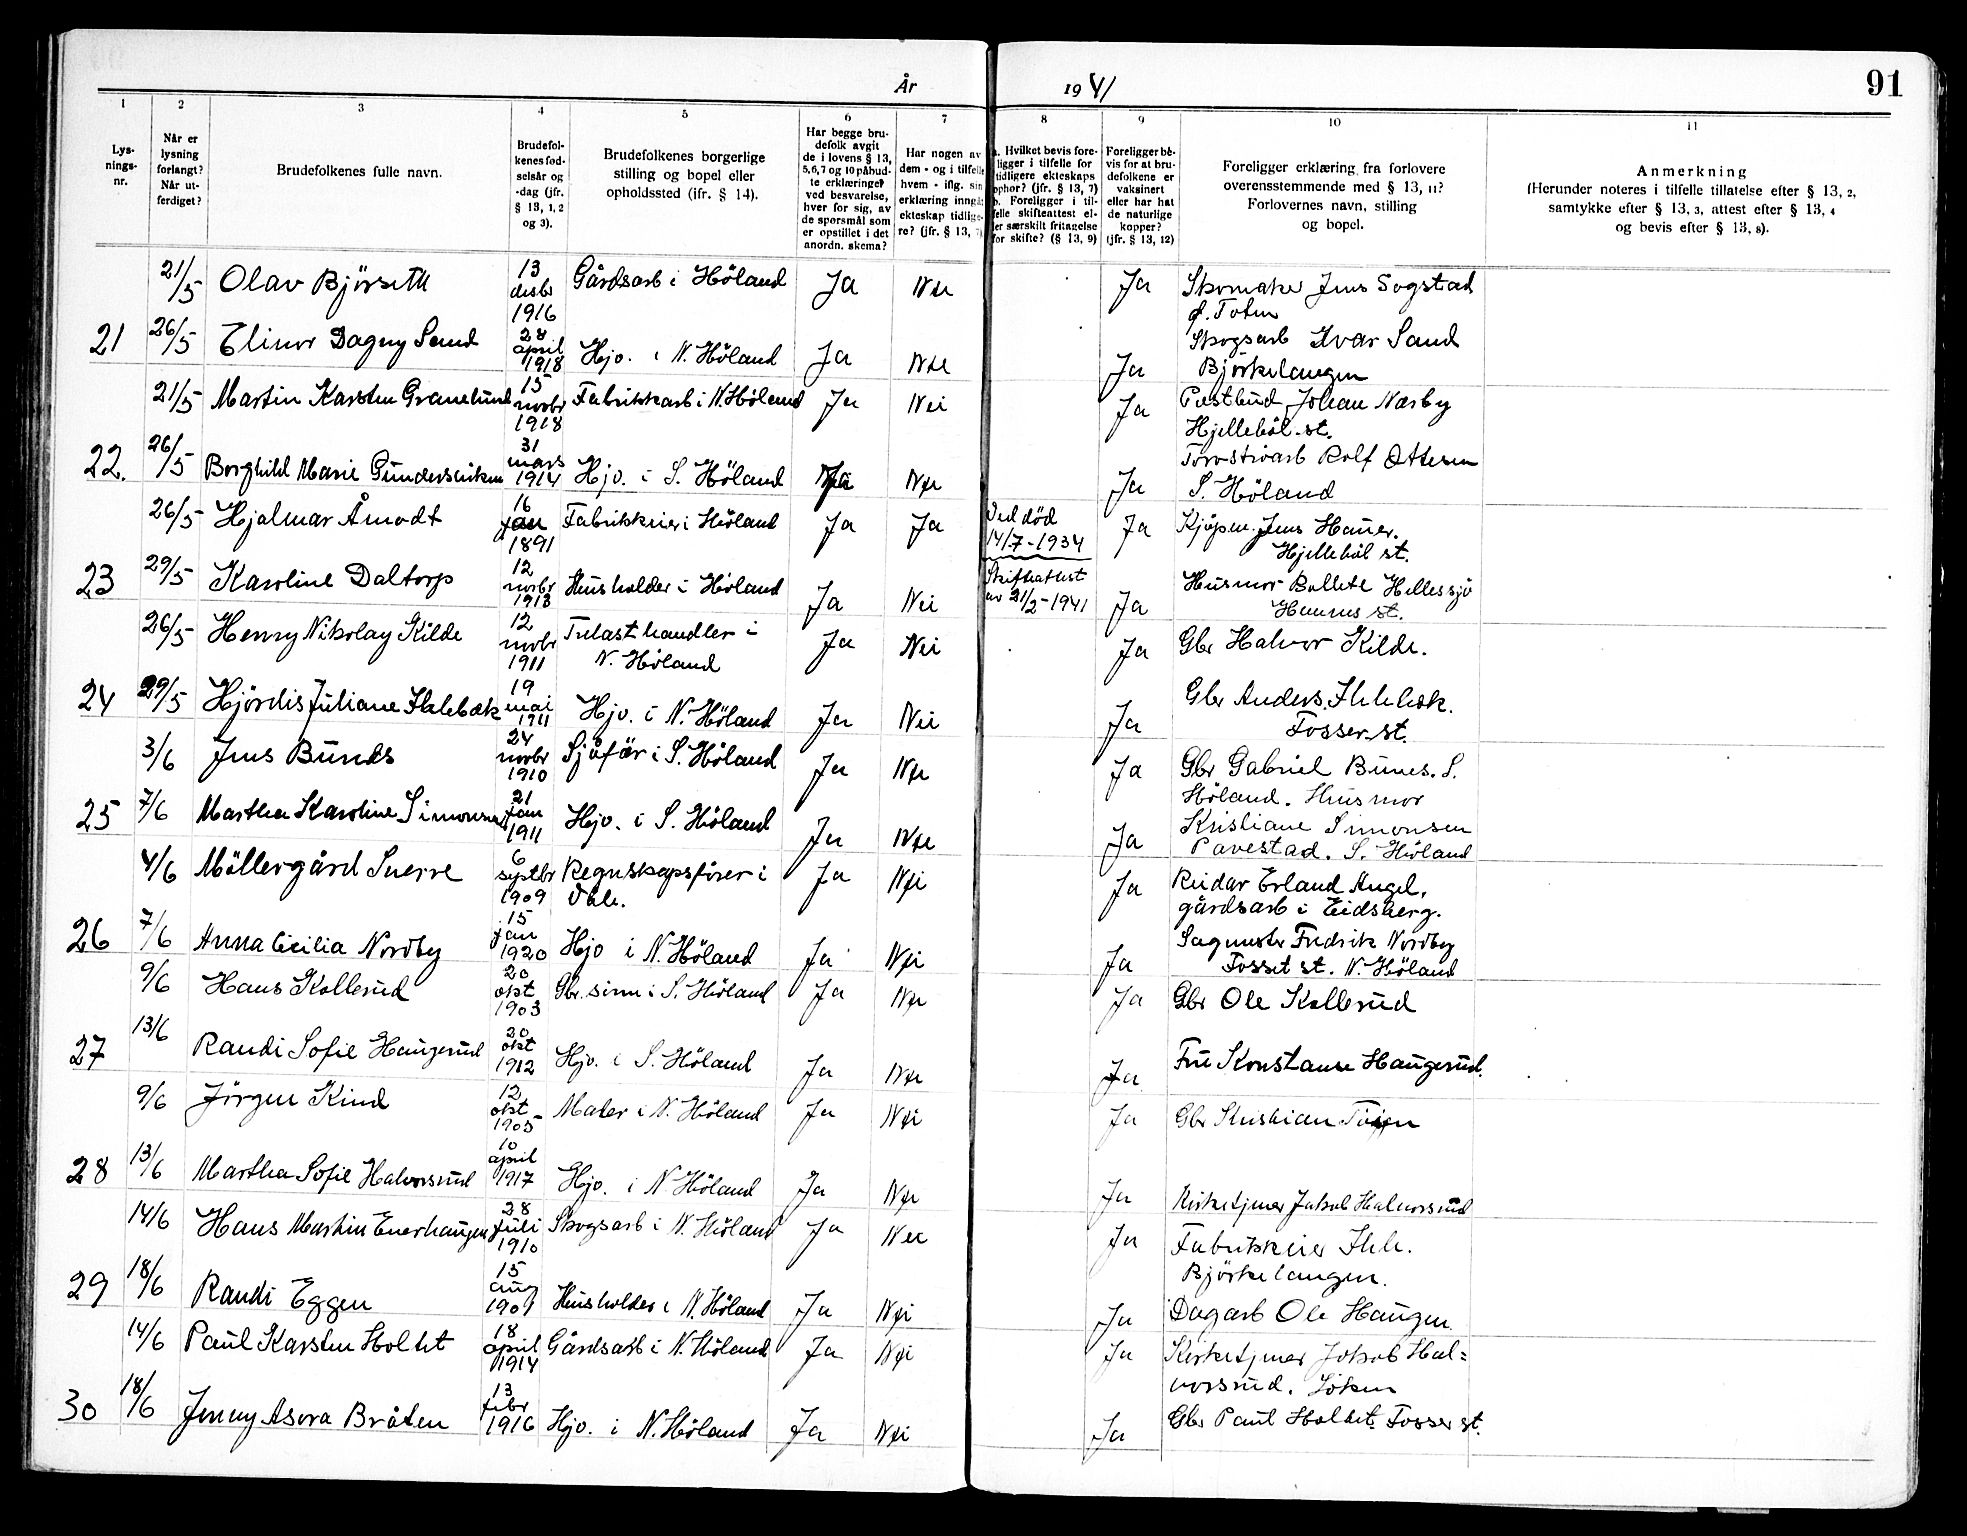 År 1941
91
1 2 3 4 5 6 7 8 9 10 11
Lys-
nings-
nr.
Når er
lysning
forlangt?
Når ut-
ferdiget?
Brudefolkenes fulle navn.
Brudefol-
kenes fød-
selsår og
-dag (jfr.
§ 13, 1, 2
og 3).
Brudefolkenes borgerlige
stilling og bopel eller
opholdssted (ifr. § 14).
Har begge bru-
defolk avgit
de i lovens § 13,
5,6,7 og 10 påbud-
te erklæringer
ved besvarelse,
hver for sig, av
de spørsmål som
er opstillet i det
anordn. skema?
Har nogen av
dem - og i tilfelle
hvem - iflg. sin
erklæring inngå
ekteskap tidlige-
re? (jfr. § 13, 7)
a. Hvilket bevis fore-
ligger i tilfelle for
tidligere ekteskaps
ophør? (jfr. § 13, 7)
b. Foreligger i til-
felle skifteattest el-
ler særskilt fritagelse
for skifte? (§ 13, 9)
Foreligger be-
vis for at bru-
defolkene er
vaksinert
eller har hat
de naturlige
kopper?
(jfr. § 13, 12)
Foreligger erklæring fra forlovere
overensstemmende med § 13, 11?
Forlovernes navn, stilling
og bopel.
Anmerkning
(Herunder noteres i tilfelle tillatelse efter § 13, 2,
samtykke efter § 13, 3, attest efter § 13, 4
og bevis efter § 13, 8).
21/5 Olav Björseth 13 desbr 1916 Gårdsarb i Höland Ja Nei Ja Skomaker Jens Sogstad
Ø. Toten
21 26/5 Elinor Dagny Sand 28 april 1918 Hjv. i N. Höland Ja Nei Ja Skogsarb Ivar Sand
Björkelangen
21/5 Martin Karsten Granelund 15 novbr 1918 Fabrikkarb i N. Höland Ja Nei Ja Postbud Johan Nærby
Hjellebøl st.
22. 26/5 Borghild Marie Gundersviken 31 mars 1914 Hjv. i S. Höland Ja Nei Ja Torvstrøarb Rolf Ottesen
S. Höland
26/5 Hjalmar Åmodt 16 jan 1891 Fabrikkeier i Höland Ja Ja Ved død
14/7-1934 Ja Kjøpm. Jens Hauer.
Hjellebøl st.
23 29/5 Karoline Daltorp 12 novbr 1913 Husholder i Höland Ja Nei Skifteattest
av 21/2-1941 Ja Husmor Bollete Hellesjø
Hemnes st.
26/5 Henry Nikolay Kilde 12 novbr 1911 Trelasthandler i
N. Höland Ja Nei Ja Gbr Halvor Kilde.
24 29/5 Hjördis Juliane Ihlebæk 19 mai 1911 Hjv. i N. Höland Ja Nei Ja Gbr Anders Ihlebæk.
Fosser st.
3/6 Jens Bunes 24 novbr 1910 Sjåfør i S. Höland Ja Nei Ja Gbr Gabriel Bunes. S.
Höland. Husmor
25 7/6 Martha Karoline Simonsen 21 jan 1911 Hjv. i S. Höland Ja Nei Ja Kristiane Simonsen
Pavestad. S. Höland
4/6 Möllergård Sverre 6 septbr 1909 Regnskapsfører i
Våler. Ja Nei Ja Reidar Erland Angel,
gårdsarb i Eidsberg.
26 7/6 Anna Cicilia Nordby 15 jan 1920 Hjv i N. Höland Ja Nei Ja Sagmester Fredrik Nordby
Fosser st. N. Höland
9/6 Hans Kollerud 20 okt 1903 Gbr. sønn i S. Höland Ja Nei Ja Gbr Ole Kollerud
27 13/6 Randi Sofie Haugerud 20 okt 1912 Hjv. i S. Höland Ja Nei Ja Fru Konstanse Haugerud.
9/6 Jörgen Kind 12 okt 1905 Maler i N. Höland Ja Nei Ja Gbr Kristian Toien
28 13/6 Martha Sofie Halvorsrud 10 april 1917 Hjv. i N. Höland Ja Nei Ja Kirketjener Jakob Halvorsrud
14/6 Hans Martin Enerhaugen 28 juli 1910 Skogsarb i N. Höland Ja Nei Ja Fabrikkeier Ihle.
Björkelangen.
29 18/6 Randi Eggen 15 aug 1901 Husholder i N. Höland Ja Nei Ja Dagarb Ole Haugen.
14/6 Paul Karsten Holtet 18 april 1914 Gårdsarb i N. Höland Ja Nei Ja Kirketjener Jakob Hal=
vorsrud. Löken
30 18/6 Jenny Asora Bråten 13 febr 1916 Hjv. i N. Höland Ja Nei Ja Gbr Paul Holtet Fosser st.